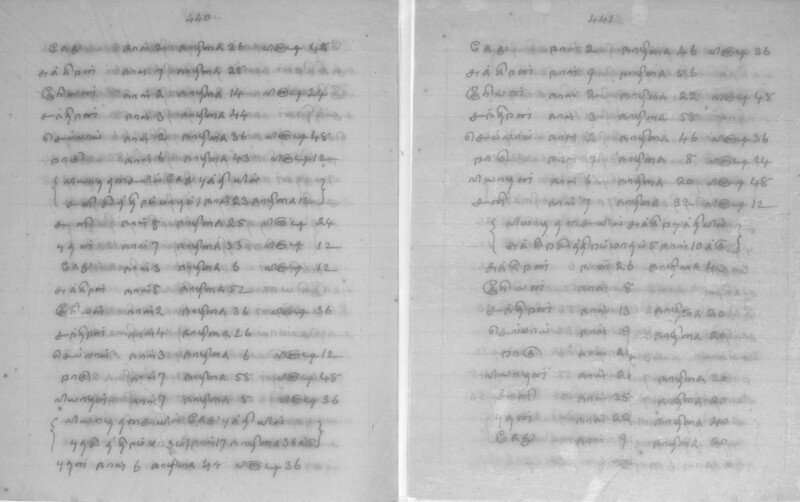 440
கேது நாள் 2 நாழிகை 26 வினாடி 48
சுக்கிரன் நாள் 7 நாழிகை 28
சூரியன் நாள் 2 நாழிகை 14 வினாடி 24
சந்திரன் நாள் 3 நாழிகை 44
செவ்வாய் நாள் 2 நாழிகை 36 வினாடி 48
ராகு நாள் 6 நாழிகை 43 வினாடி 12
கேது புத்தியில்
1 நாள் 23 நாழிகை 12
சனி நாள் 8 நாழிகை 25 வினாடி 24
புதன் நாள் 7 நாழிகை 33 வினாடி 12
கேது நாள் 3 நாழிகை 6 வினாடி 12
சுக்கிரன் நாள் 8 நாழிகை 52
சூரியன் நாள் 2 நாழிகை 36 வினாடி 36
சந்திரன் நாள் 4 நாழிகை 26
செவ்வாய் நாள் 3 நாழிகை 6 வினாடி 12
ராகு நாள் 7 நாழிகை 58 வினாடி 48
நாள் 7 நாழிகை 5 வினாடி 36
கேது புத்தியில்
நாள் 17 நாழிகை 36
புதன் நாள் 6 நாழிகை 44 வினாடி 36
441
கேது நாள் 2 நாழிகை 46 வினாடி 36
சுக்கிரன் நாள் 7 நாழிகை 56
சூரியன் நாள் 2 நாழிகை 22 வினாடி 48
சந்திரன் நாள் 3 நாழிகை 58
செவ்வாய் நாள் 2 நாழிகை 46 வினாடி 36
ராகு நாள் 7 நாழிகை 8 வினாடி 24
நாள் 6 நாழிகை 20 வினாடி 48
சனி நாள் 7 நாழிகை 32 வினாடி 12
புத்தியில்
5 நாள் 10
சுக்கிரன் நாள் 26 நாழிகை 40
சூரியன் நாள் 8
சந்திரன் நாள் 13 நாழிகை 20
செவ்வாய் நாள் 9 நாழிகை 20
ராகு நாள்
நாள் நாழிகை 20
சனி நாள் 25 நாழிகை 20
புதன் நாள் 22 நாழிகை 40
கேது நாள் 9 நாழிகை 20